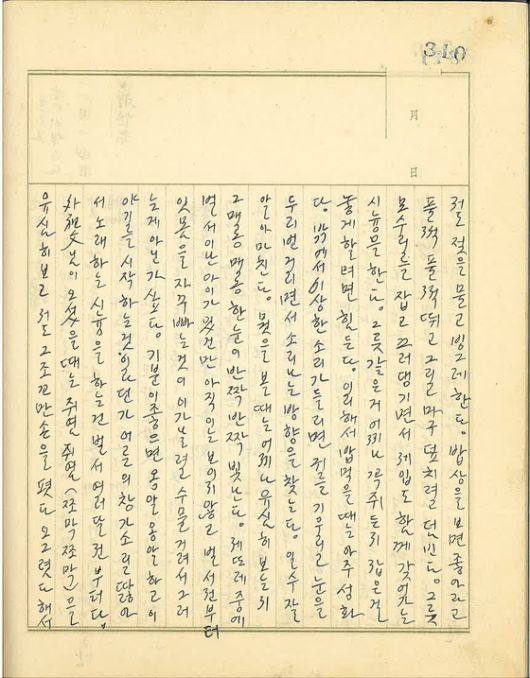 310
月
日
젖을 물고 빙그레 한다. 밥상을 보면 좋아라고
풀쩍 풀쩍 뛰고 그리로 마구 덮치려 덤빈다. 그릇
모수리를 잡고 끄러댕기면서 제입도 함께 갖어가는
시늉을 한다. 그릇같은거 어찌나 꼭 쥐는지 잡은걸
놓게할려면 힘든다. 이뤄해서 밥먹을때는 아주 성화
다. 밖에서 이상한 소리가 들리면 귀를 기우리고 눈을
두리번거리면서 소리나는 방향을 찾는다. 일수 잘
알아마친다. 무엇을 볼때는 어찌나 유심히 보는지
그 매롱 매롱한 눈이 반짝 반짝 빛난다. 제또레 중에
벌서 이난 아이가 있건만 아직 이는 보이지않고 벌서전부터
잇몸을 자꾸 빠는것이 이가 날려고 수물거려서 그러
는게 아닌가 싶다. 기분이 좋으면 옹알 옹알 하고 이
야기를 시작하는것이라던가 어른의 창가소리 딿아
서 노래하는 시늉을 하는건 벌서 여러달 전부터다.
외祖父님이 오셨을때는 쥐염 쥐염 (쪼막 쪼막)을
유심히 보고 저도 그 조꼬만손을 폈다 오그렸다 해서